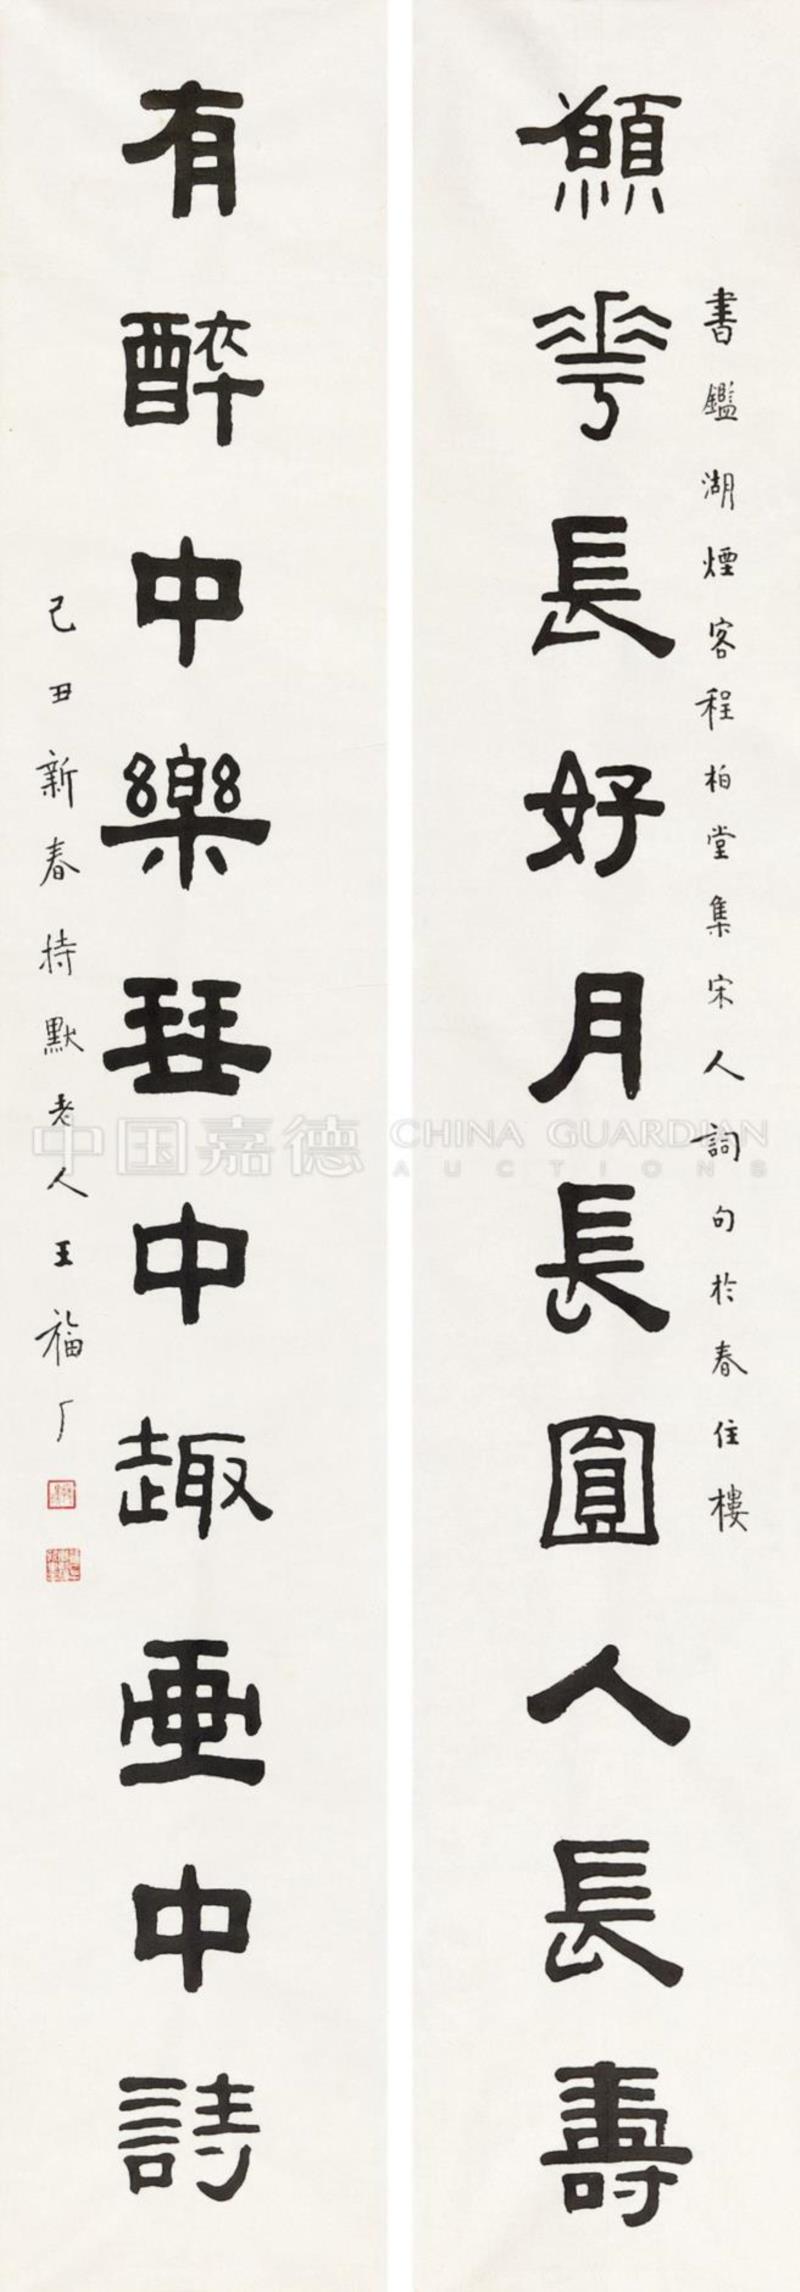 願華長好月長圓人長壽
書鑑湖煙客程柏堂集宋人詞句於春住樓
有醉中樂琹中趣畫中詩
己丑新春持默老人王福厂
中国嘉德 CHINA GUARDIAN
AUCTIONS